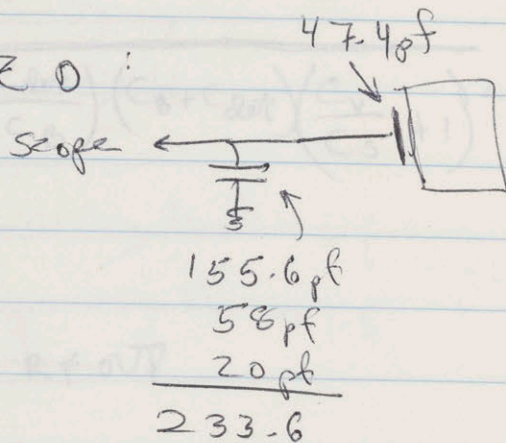 47.4pf
Z D :
scope
155.6pf
58pf
20pf
233.6